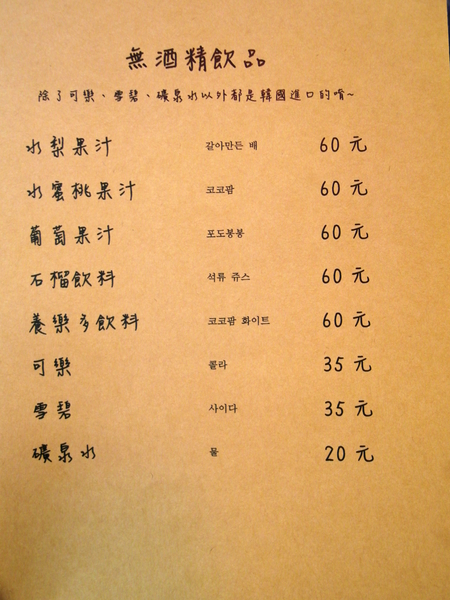 無酒精飲品
除了可樂、雪碧、礦泉水以外都是韓國進口的唷~
水梨果汁 갈아만든 배 60 元
水蜜桃果汁 코코팜 60 元
葡萄果汁 포도봉봉 60 元
石榴飲料 석류 쥬스 60 元
養樂多飲料 코코팜 화이트 60 元
可樂 콜라 35 元
雪碧 사이다 35 元
礦泉水 물 20 元